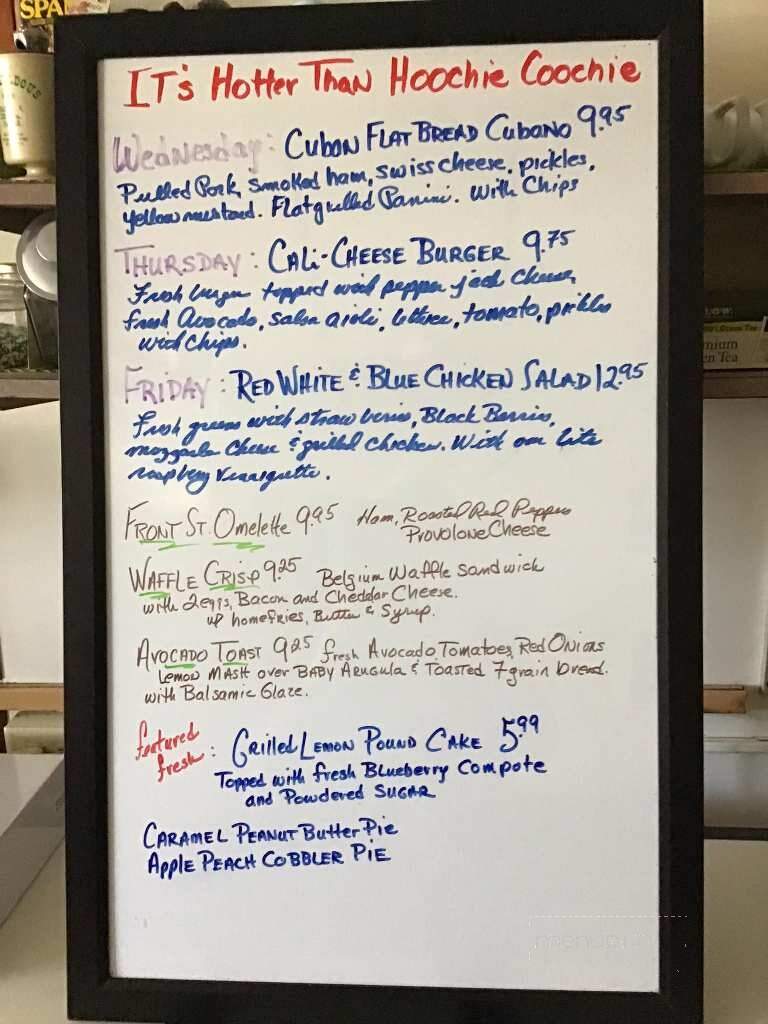 SPA
IT's Hotter Than Hoochie Coochie
Wednesday: Cubon Flat Bread Cubano 9.95
Pulled Pork, smoked ham, swiss cheese, pickles,
yellow mustard. Flat grilled Panini. With Chips
THURSDAY: CALI-CHEESE BURGER 9.75
Fresh burger topped with pepper jack cheese,
fresh Avocado, salsa aioli, lettuce, tomato, pickles
with Chips.
FRIDAY: RED WHITE & BLUE CHICKEN SALAD 12.95
Fresh greens with strawberries, Black Berries,
mozzarella Cheese & grilled chicken. With our lite
raspberry Vinaigrette.
FRONT ST. Omelette 9.95 Ham, Roasted Red Peppers
Provolone Cheese
WAFFLE CRISP 9.25 Belgium Waffle Sandwich
with 2 eggs, Bacon and Cheddar Cheese.
w/ homefries, Butter & Syrup.
AVOCADO TOAST 9.25 fresh Avocado, Tomatoes, Red Onions
Lemon MASH over BABY Arugula & Toasted 7 grain bread.
with Balsamic Glaze.
featured
fresh: Grilled Lemon Pound Cake 5.99
Topped with fresh Blueberry Compote
and Powdered SUGAR
CARAMEL PEANUT Butter Pie
Apple PEACH COBBLER PIE